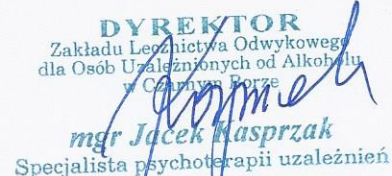 DYREKTOR
Zakładu Lecznictwa Odwykowego
dla Osób Uzależnionych od Alkoholu
w Czarnym Borze
mgr Jacek Kasprzak
Specjalista psychoterapii uzależnień